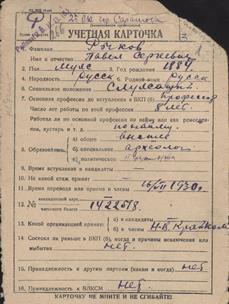 2й РК гор. Саратова
УЧЕТНАЯ КАРТОЧКА
Фамилия Рыков
Имя и отчество Павел Сергеевич
2. Пол муж 3. Год рождения 1884
4. Народность русск 5. Родной язык русск
6. Социальное положение служащий
7. Основная профессия до вступления в ВКП (б) профессор
Число лет работы по этой профессии 8 лет.
8. Основная профессия по работе по найму или как ремесленника, кустаря и т. д. по найму.
9. Образование: общее высшее
специальн. археолог
политическое
Время вступления в кандидаты
10. На какой стаж принят
11. Время перевода или приема в члены 16/II 1930 г.
12. № партийного билета 1422513
13. Какой организацией принят: Н-В Крайкомом
14. Состоял ли раньше в ВКП (б), когда и причины исключения или выбытия нет.
15. Принадлежность к другим партиям (каким и когда) нет
16. Принадлежность к ВЛКСМ нет.
КАРТОЧКУ НЕ МНИТЕ И НЕ СГИБАЙТЕ!